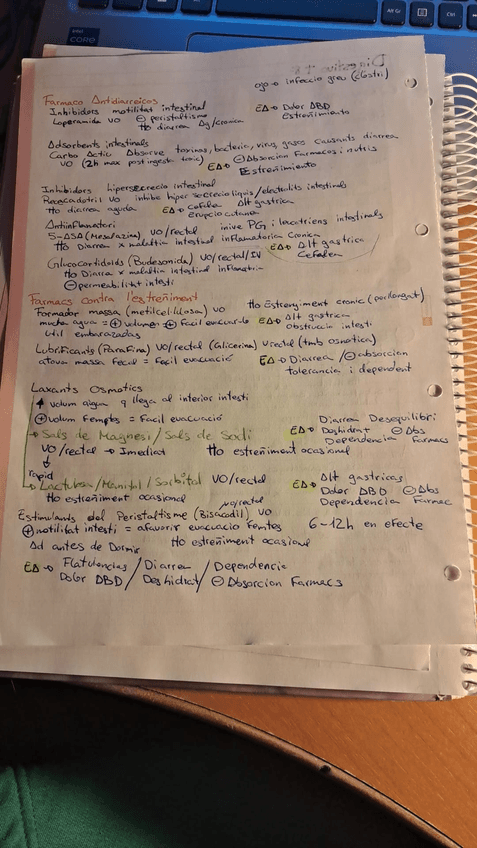 Digestiu T6
ojo → infeccio greu (↻Gastri)
Farmaco Antidiarreicos
Inhibidors motilitat intestinal
EΔ → Dolor ABD
Loperamida VO ⊖ peristaltisme
Estreñimiento
Tto diarrea Ag/cronica
Adsorbents intestinals
Carbo Actiu Absorve toxines, bacteris, virus, gasos causants diarrea
VO (2h max post ingesta toxic) EΔ → ⊖Absorcion Farmacos i nutris
Estreñimiento
Inhibidors hipersecrecio intestinal
Racecadotril VO inhibe hiper secrecio liquis/electrolits intestinals
Tto diarrea aguda EΔ → Cefalea Alt gastrica
erupcio cutanea
Antiinflamatori
5-ASA (Mesalazina) VO/rectal inive PG i leucotriens intestinals
Tto Diarrea x malaltia intestinal inflamatoria Cronica
EΔ → Alt gastrica
Cefalea
Glucocorticoids (Budesonida) VO/rectal/IV
Tto Diarrea x malaltia intestinal inflamatria
⊖permeabilitat intesti
Farmacs contra l'estreñiment
Formador massa (metilcel·lulosa) VO
Tto Estrenyiment cronic (perllongat)
mucha agua = ⊕ volumen → ⊕ Facil evacuarlo EΔ → Alt gastrica
Obstruccio intesti
util embarazadas
Lubrificants (Parafina) VO/rectal (Glicerina) Vrectal (tmb osmotica)
atova massa Fecal = Facil evacuació
EΔ → Diarrea /⊖absorcion
tolerancia i dependent
Laxants Osmotics
↑ volum aigua q llega al interior intesti
⊕volum Femptes = Facil evacuació
→ Sals de Magnesi/Sals de Sodi
EΔ → Diarrea Desequilibri
Deshidrat ⊖Abs
Dependencia Farmacs
VO/rectal → Imediat Tto estreñiment ocasional
↓
rapid
→ Lactulosa/Manitol/Sorbitol VO/rectal
EΔ → Alt gastricas
Dolor ABD ⊖Abs
Dependencia Farmac
Tto estreñiment ocasional
VO/rectal
Estimulants del Peristaltisme (Bisacodil) VO
⊕motilitat intesti = afavorir evacuacio Femtes 6-12h en efecte
Ad antes de Dormir Tto estreñiment ocasional
EΔ → Flatulencias / Diarrea / Dependencia
Dolor ABD / Deshidrat / ⊖Absorcion Farmacs
intel
CORE
Alt Gr
Ctrl